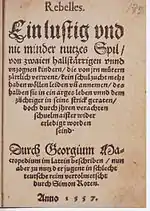 Rebelles.
Ein lustig vnd
nit minder nutzes Spyl,
von zwaien hallstarrigen vnnd
vnzognen kindern, die von jrn mütern
zärtlich verwent, kein schul zucht mehr
haben wöllen leiden vñ annemen, des
haben sie in ein arges leben vnnd dem
züchtiger in seine strick geraten,
doch durch jhren verachten
schuelmaister wider
erledigt worden
seind
Durch Georgium Ma
cropedium im Latein beschriben, nun
aber zu nutz der jugent in schlecht
teutsche reim vertolmetscht
durch Simon Roten.
Anno 1557.